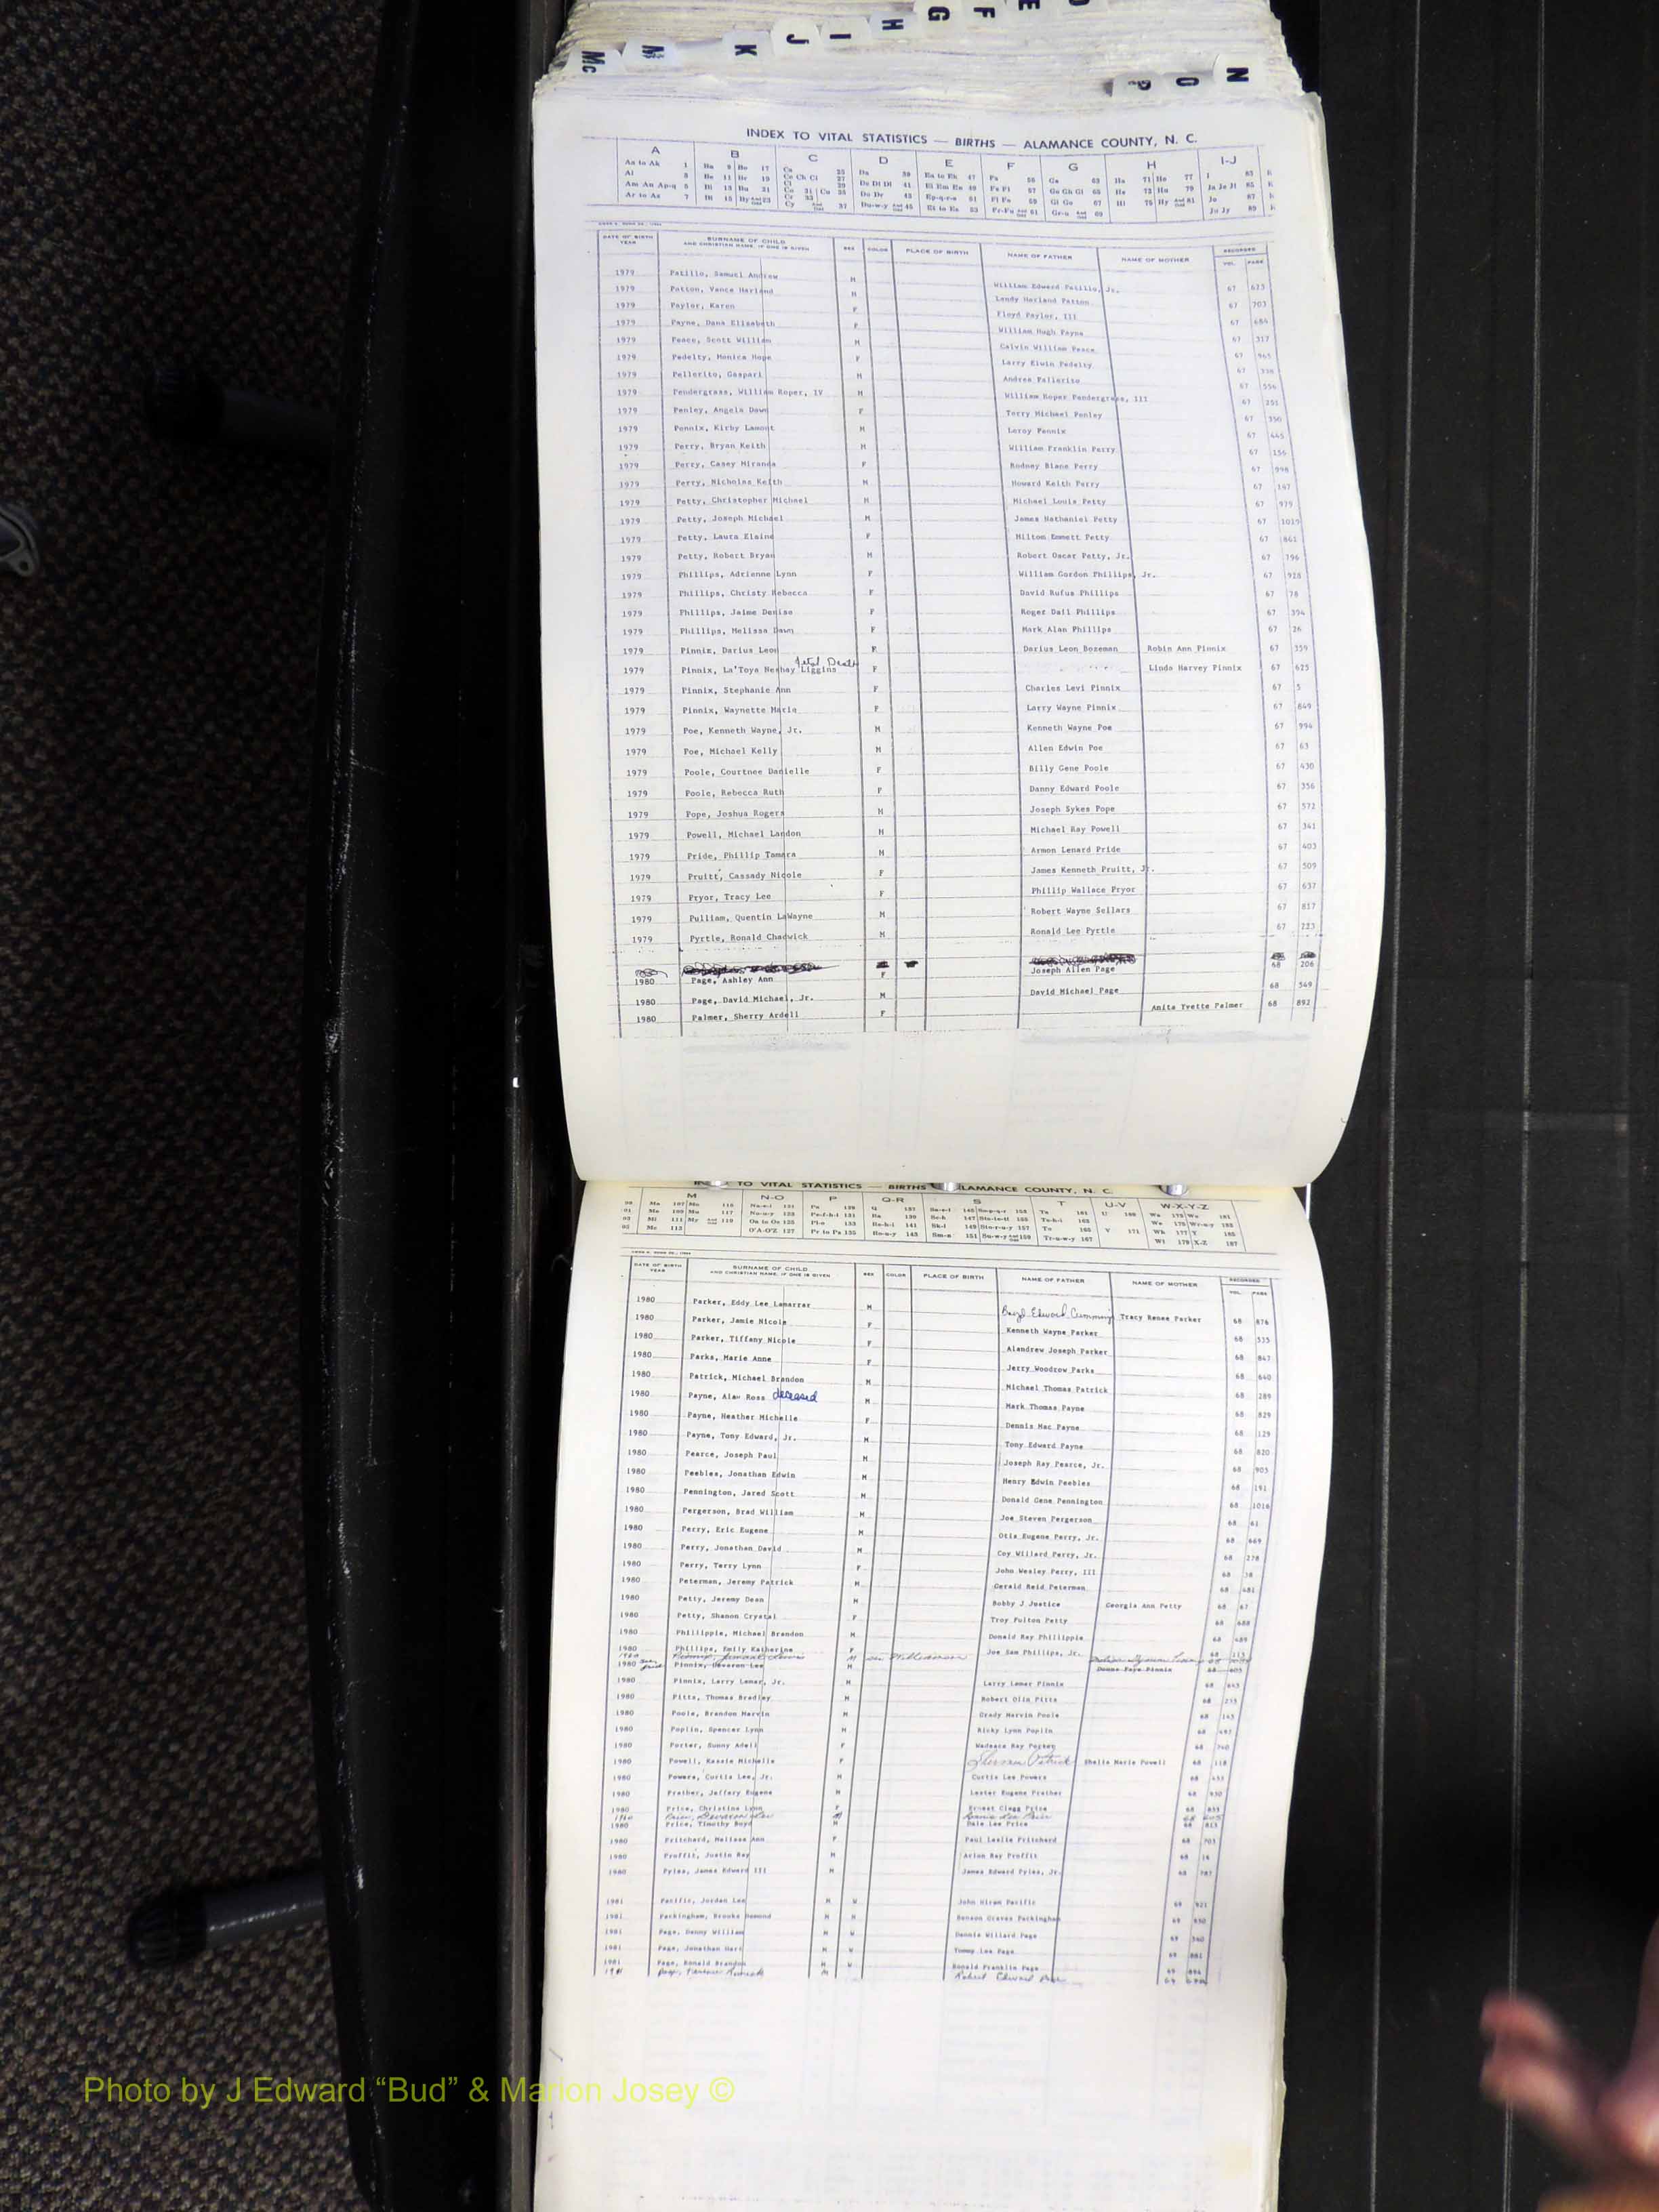 D
E
F
G
H
I
J
K
M
Mc
N
O
P
INDEX TO VITAL STATISTICS — BIRTHS — ALAMANCE COUNTY, N. C.
A B C D E F G H I-J
DATE OF BIRTH YEAR SURNAME OF CHILD AND CHRISTIAN NAME, IF ONE IS GIVEN SEX COLOR PLACE OF BIRTH NAME OF FATHER NAME OF MOTHER RECORDED VOL. PAGE
1979 Patillo, Samuel Andrew M William Edward Patillo, Jr. 67 673
1979 Patton, Vance Harland M Landy Harland Patton 67 703
1979 Paylor, Karen F Floyd Paylor, III 67 684
1979 Payne, Dana Elizabeth F William Hugh Payne 67 317
1979 Peace, Scott William M Calvin William Peace 67 965
1979 Pedelty, Monica Hope F Larry Elwin Pedelty 67
1979 Pellerito, Gaspari M Andrea Pellerito 67 556
1979 Pendergrass, William Roper, IV M William Roper Pendergrass, III 67 251
1979 Penley, Angela Dawn F Terry Michael Penley 67 350
1979 Pennix, Kirby Lamont M Leroy Pennix 67 445
1979 Perry, Bryan Keith M William Franklin Perry 67 156
1979 Perry, Casey Miranda F Rodney Blane Perry 67 998
1979 Perry, Nicholas Keith M Howard Keith Perry 67 147
1979 Petty, Christopher Michael M Michael Louis Petty 67 979
1979 Petty, Joseph Michael M James Nathaniel Petty 67 1019
1979 Petty, Laura Elaine F Milton Emmett Petty 67 861
1979 Petty, Robert Bryan M Robert Oscar Petty, Jr. 67 796
1979 Phillips, Adrienne Lynn F William Gordon Phillips, Jr. 67 928
1979 Phillips, Christy Rebecca F David Rufus Phillips 67 78
1979 Phillips, Jaime Denise F Roger Dail Phillips 67 394
1979 Phillips, Melissa Dawn F Mark Alan Phillips 67 26
1979 Pinnix, Darius Leon Darius Leon Boseman Robin Ann Pinnix 67 359
1979 Pinnix, La'Toya Neshay Liggins Fetal Death F Linda Harvey Pinnix 67 625
1979 Pinnix, Stephanie Ann F Charles Levi Pinnix 67 5
1979 Pinnix, Waynette Marie F Larry Wayne Pinnix 67 849
1979 Poe, Kenneth Wayne, Jr. M Kenneth Wayne Poe 67 994
1979 Poe, Michael Kelly M Allen Edwin Poe 67 63
1979 Poole, Courtnee Danielle F Billy Gene Poole 67 430
1979 Poole, Rebecca Ruth F Danny Edward Poole 67 356
1979 Pope, Joshua Rogers M Joseph Sykes Pope 67 572
1979 Powell, Michael Landon M Michael Ray Powell 67 341
1979 Pride, Phillip Tamara M Armon Lenard Pride 67 403
1979 Pruitt, Cassady Nicole F James Kenneth Pruitt, Jr. 67 509
1979 Pryor, Tracy Lee F Phillip Wallace Pryor 67 637
1979 Pulliam, Quentin LaWayne M Robert Wayne Sellars 67 817
1979 Pyrtle, Ronald Chadwick M Ronald Lee Pyrtle 67 223
1980 Page, Ashley Ann F Joseph Allen Page 68 206
1980 Page, David Michael, Jr. M David Michael Page 68 549
1980 Palmer, Sherry Ardell F Anita Yvette Palmer 68 892
INDEX TO VITAL STATISTICS — BIRTHS — ALAMANCE COUNTY, N. C.
M N-O P Q-R S T U-V W-X-Y-Z
DATE OF BIRTH YEAR SURNAME OF CHILD AND CHRISTIAN NAME, IF ONE IS GIVEN SEX COLOR PLACE OF BIRTH NAME OF FATHER NAME OF MOTHER RECORDED VOL. PAGE
1980 Parker, Eddy Lee Lamarrar M Boyd Edward Cummings Tracy Renee Parker 68 876
1980 Parker, Jamie Nicole F Kenneth Wayne Parker 68 535
1980 Parker, Tiffany Nicole F Alandrew Joseph Parker 68 847
1980 Parks, Marie Anne F Jerry Woodrow Parks 68 640
1980 Patrick, Michael Brandon M Michael Thomas Patrick 68 289
1980 Payne, Alan Ross deceased M Mark Thomas Payne 68 829
1980 Payne, Heather Michelle F Dennis Mac Payne 68 129
1980 Payne, Tony Edward, Jr. M Tony Edward Payne 68 820
1980 Pearce, Joseph Paul M Joseph Ray Pearce, Jr. 68 905
1980 Peebles, Jonathan Edwin M Henry Edwin Peebles 68 191
1980 Pennington, Jared Scott M Donald Gene Pennington 68 1016
1980 Pergerson, Brad William M Joe Steven Pergerson 68 61
1980 Perry, Eric Eugene M Otis Eugene Perry, Jr. 68 669
1980 Perry, Jonathan David M Coy Willard Perry, Jr. 68 278
1980 Perry, Terry Lynn F John Wesley Perry, III 68 38
1980 Peterman, Jeremy Patrick M Gerald Reid Peterman 68 481
1980 Petty, Jeremy Dean M Bobby J Justice Georgia Ann Petty 68 67
1980 Petty, Shanon Crystal F Troy Fulton Petty 68 688
1980 Phillippie, Michael Brandon M Donald Ray Phillippie 68 489
1980 Phillips, Emily Katherine F Joe Sam Phillips, Jr. 68 113
1980 Pinnix, Devaron Lee M Donna Faye Pinnix 68 605
1980 Pinnix, Larry Lamar, Jr. M Larry Lamar Pinnix 68 645
1980 Pitts, Thomas Bradley M Robert Olin Pitts 68 233
1980 Poole, Brandon Marvin M Grady Marvin Poole 68 145
1980 Poplin, Spencer Lynn M Ricky Lynn Poplin 68 497
1980 Porter, Sunny Adell F Wadeace Ray Porter 68 740
1980 Powell, Kassie Michelle F Sherman Patrick Sheila Marie Powell 68 118
1980 Powers, Curtis Lee, Jr. M Curtis Lee Powers 68 433
1980 Prather, Jeffery Eugene M Lester Eugene Prather 68 930
1980 Price, Christina Lynn F Ernest Clegg Price 68 835
1980 Price, Devaron Lee M Ronnie Lee Price 68 605
1980 Price, Timothy Boyd M Dale Lee Price 68 813
1980 Pritchard, Melissa Ann F Paul Leslie Pritchard 68 703
1980 Proffit, Justin Ray M Arlon Ray Proffit 68 16
1980 Pyles, James Edward III M James Edward Pyles, Jr. 68 787
1981 Pacific, Jordan Lee M W John Hiram Pacific 69 921
1981 Packingham, Brooks Damond M Benson Graves Packingham 69 950
1981 Page, Danny William M W Dannie Willard Page 69 340
1981 Page, Jonathan Hart M W Tommy Lee Page 69 881
1981 Page, Ronald Brandon M W Ronald Franklin Page 69 894
1981 Page, M Robert Edward Page 69
Photo by J Edward “Bud” & Marion Josey ©